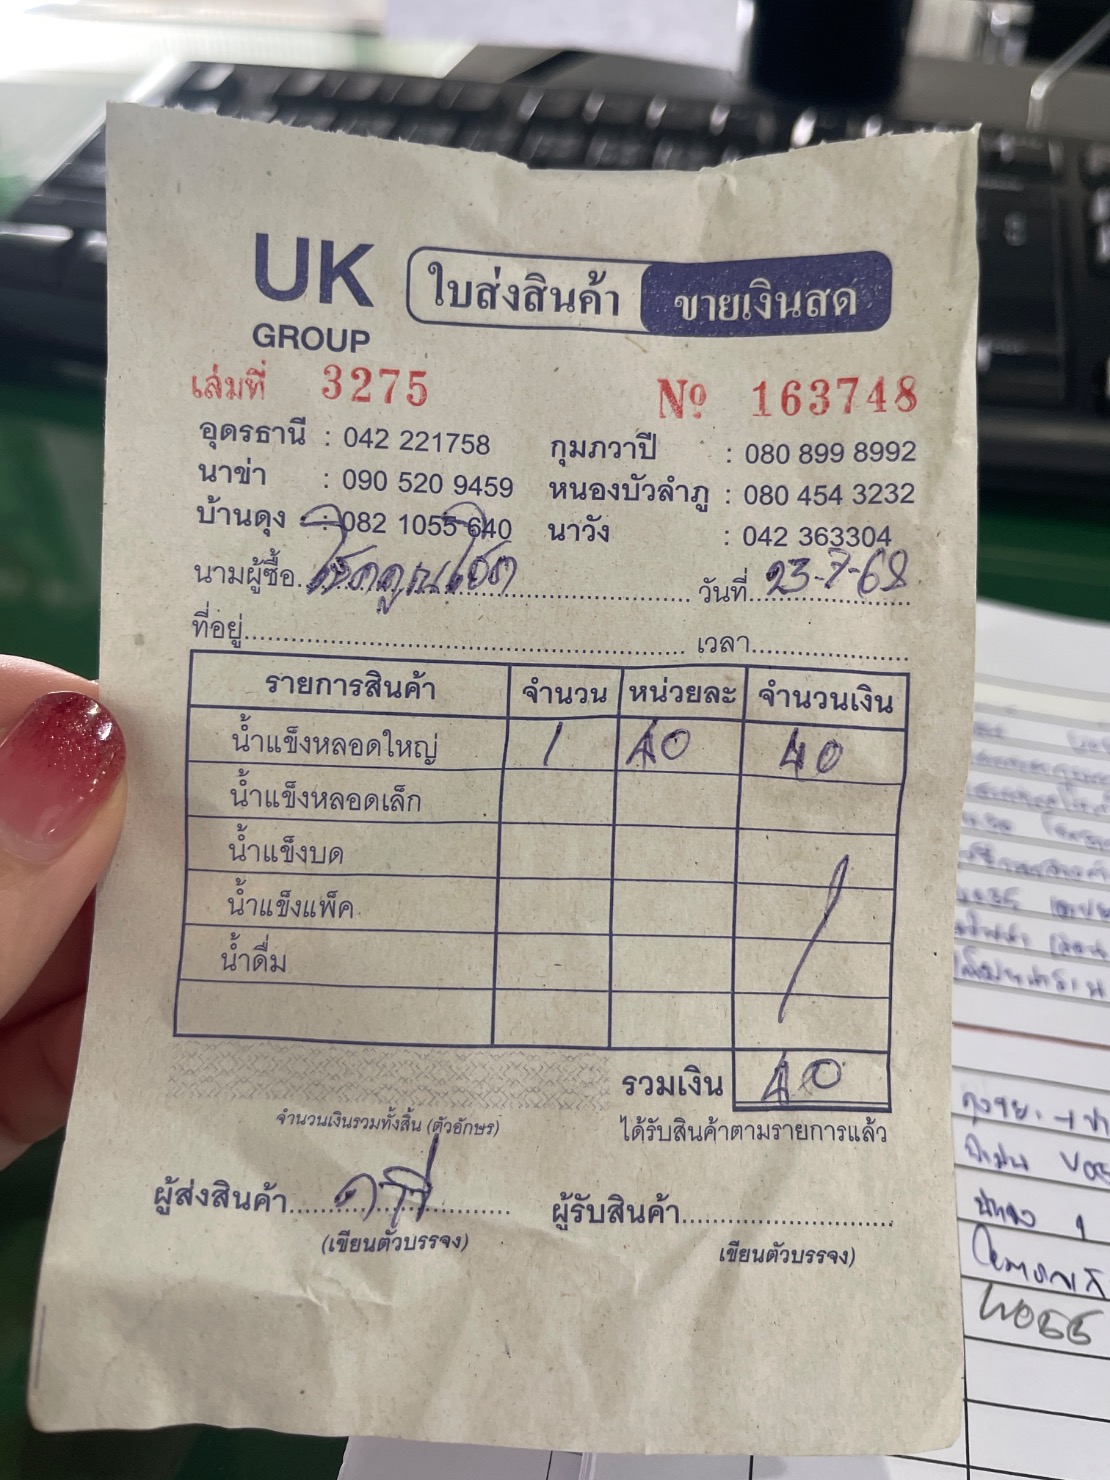 UK
GROUP
ใบส่งสินค้า ขายเงินสด
เล่มที่ 3275 № 163748
อุดรธานี : 042 221758 กุมภวาปี : 080 899 8992
นาข่า : 090 520 9459 หนองบัวลำภู : 080 454 3232
บ้านดุง : 082 1055 640 นาวัง : 042 363304
นามผู้ซื้อ โชคคูณโชค วันที่ 23-7-68
ที่อยู่ เวลา
รายการสินค้า จำนวน หน่วยละ จำนวนเงิน
น้ำแข็งหลอดใหญ่ 1 40 40
น้ำแข็งหลอดเล็ก
น้ำแข็งบด
น้ำแข็งแพ็ค
น้ำดื่ม
รวมเงิน 40
จำนวนเงินรวมทั้งสิ้น (ตัวอักษร) ได้รับสินค้าตามรายการแล้ว
ผู้ส่งสินค้า ผู้รับสินค้า
(เขียนตัวบรรจง) เขียนตัวบรรจง)